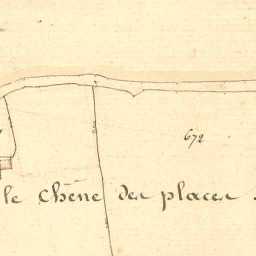 672
le Chêne des places